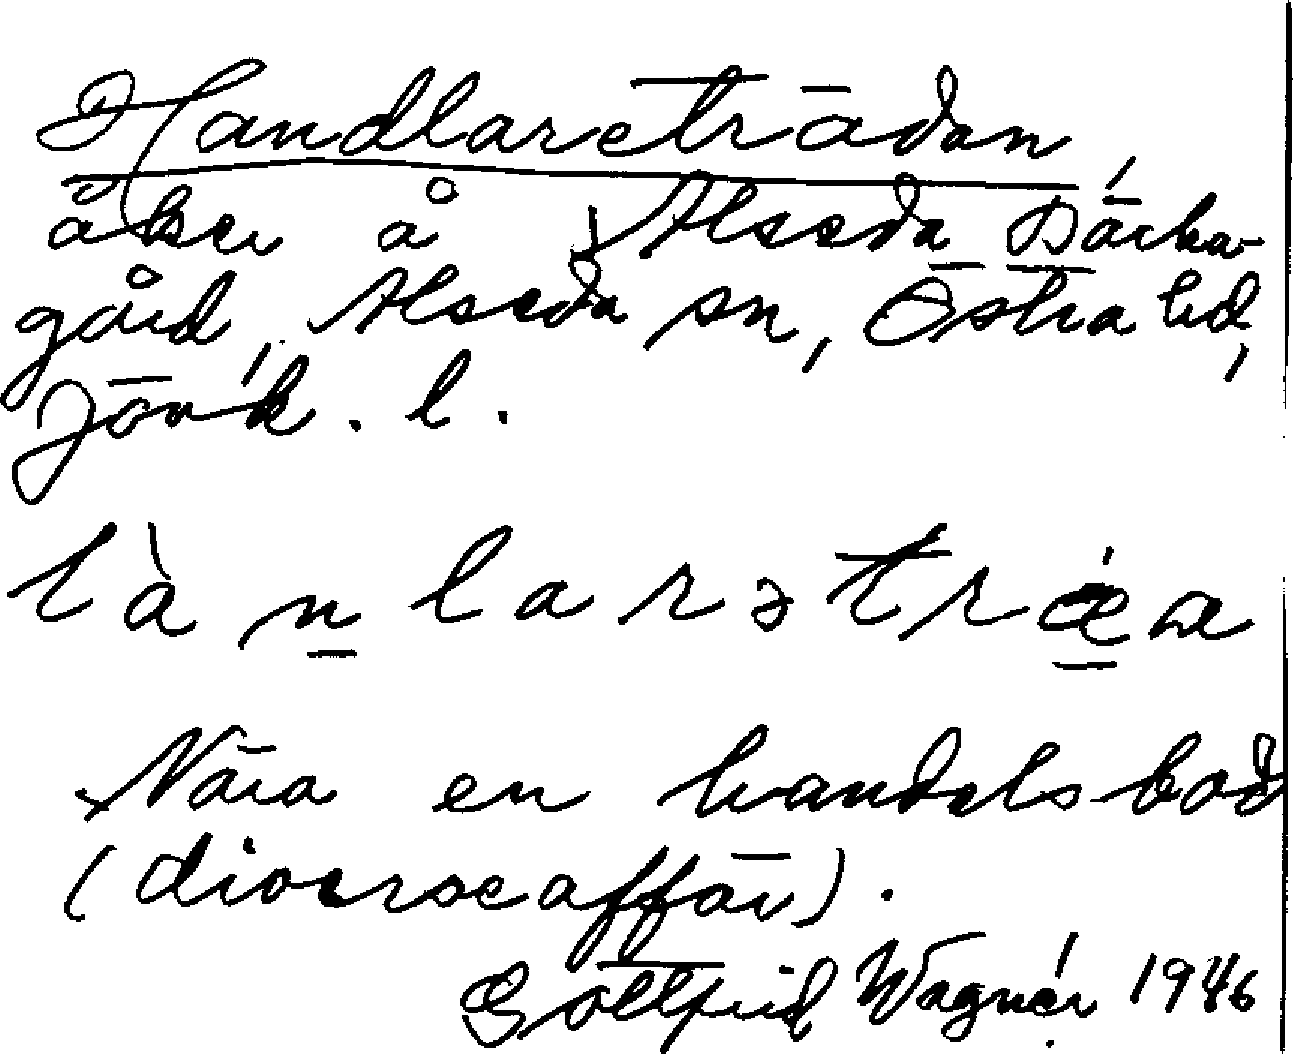 Handlareträdan,
åker å Alseda Bäcka-
gård, Alseda sn, Östra hd,
Jönk. l.
hànlarɜtrǽa
Nära en handelsbod
(diverseaffär).
Gottfrid Wagnér 1946